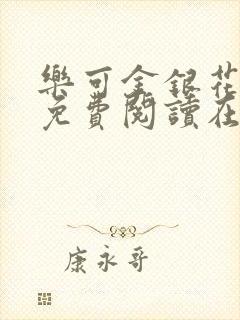 樂可金銀花
免費閱讀在
康永哥